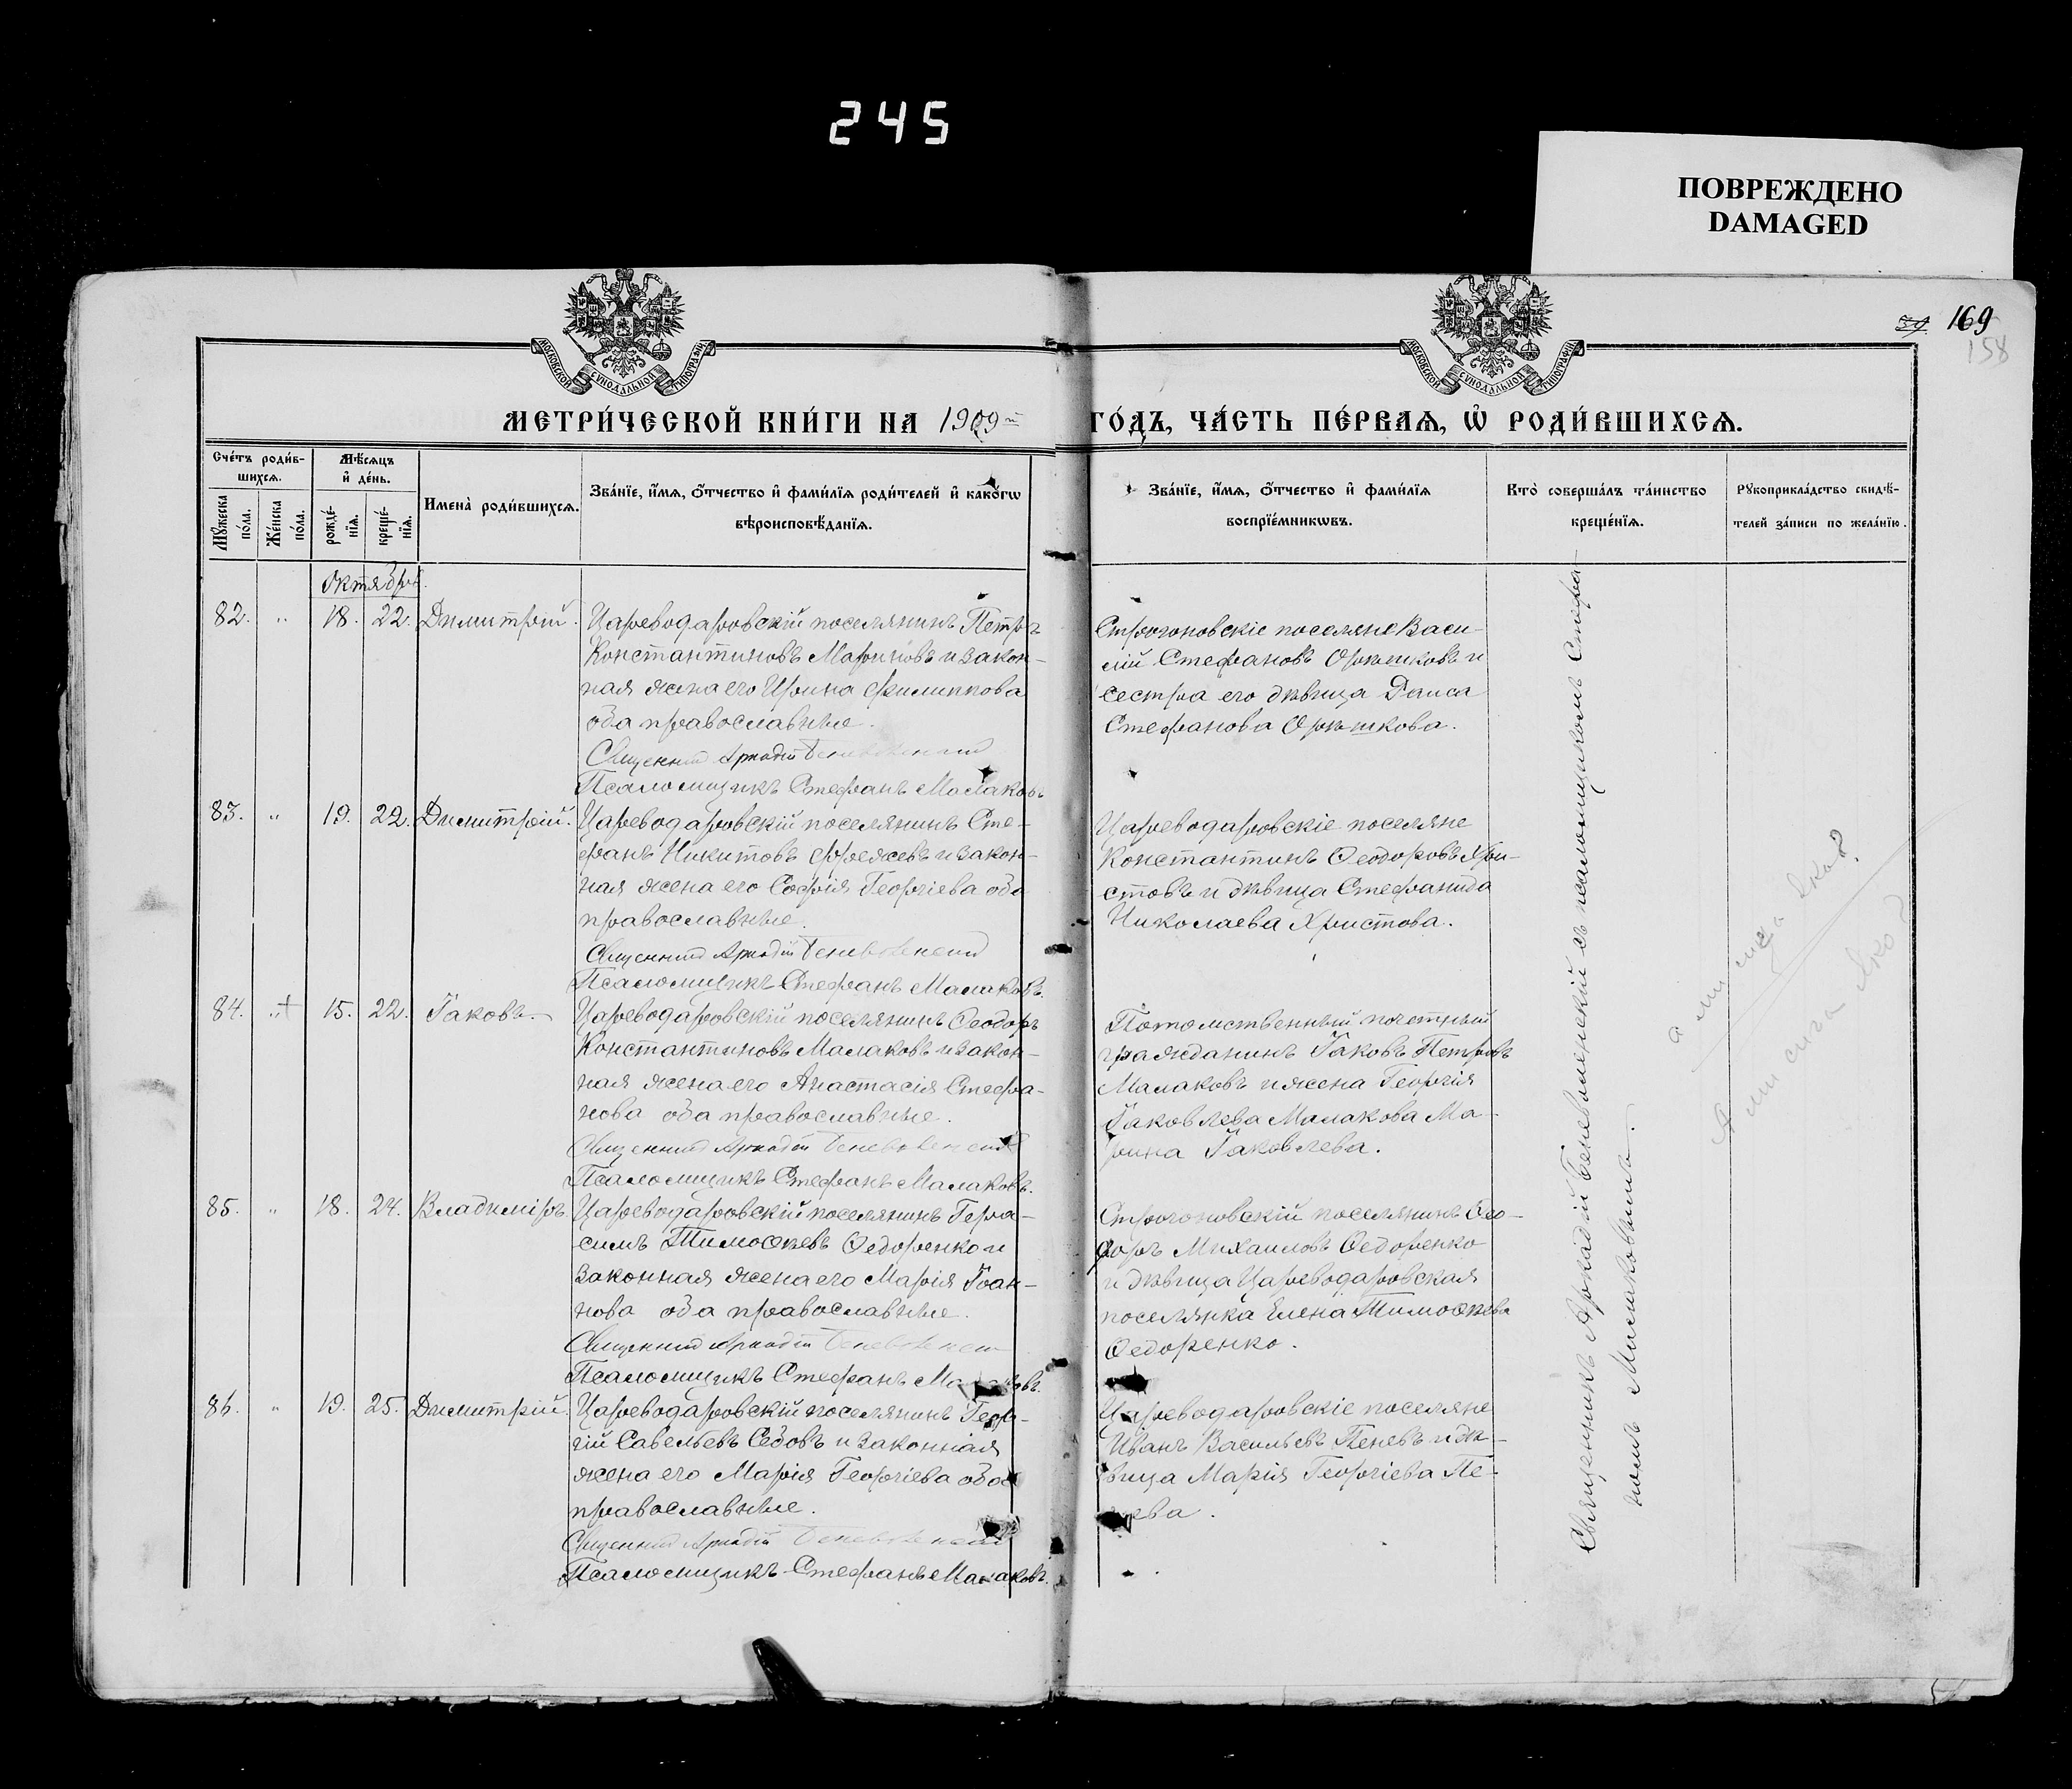 245
ПОВРЕЖДЕНО
DAMAGED
169
158
МОСКОВСКОЙ СѴНОДАЛЬНОЙ ТИПОГРАФІИ
МОСКОВСКОЙ СѴНОДАЛЬНОЙ ТИПОГРАФІИ
МЕТРИ́ЧЕСКОЙ КНИ́ГИ НА 1909й ГО́ДЪ, ЧА́СТЬ ПЕ́РВАѦ, Ѡ҆ РОДИ́ВШИХСѦ.
Сче́тъ роди́в-
шихсѧ.
Мꙋ́жеска по́ла.
Же́нска по́ла.
Мѣ́сѧцъ
и҆ де́нь.
рожде́-
нїѧ.
креще́-
нїѧ.
Имена̀ роди́вшихсѧ.
Зва́нїе, и҆́мѧ, ѻ҆́тчество и҆ фами́лїѧ роди́телей и҆ како́гѡ
вѣроисповѣ́данїѧ.
Зва́нїе, и҆́мѧ, ѻ҆́тчество и҆ фами́лїѧ
воспрїе́мникѡвъ.
Кто̀ соверша́лъ та́инство
креще́нїѧ.
Рꙋкоприкла́дство свидѣ́-
телей за́писи по жела́нїю.
Октябрь.
82. " 18. 22. Димитрій.
Царевода́ровскій поселянинъ Петръ
Константиновъ Мариновъ и закон-
ная жена его Ирина Филиппова
оба православные.
Священникъ Аркадій Беневоленскій
Псаломщикъ Стефанъ Малаковъ
Строгоновскіе поселяне Васи-
лій Стефановъ Орѣшковъ и
сестра его дѣвица Раиса
Стефанова Орѣшкова.
83. " 19. 22. Димитрій.
Цареводаровскій поселянинъ Сте-
фанъ Никитовъ и закон-
ная жена его Софія Георгіева оба
православные.
Священникъ Аркадій Беневоленскій
Псаломщикъ Стефанъ Малаковъ.
Цареводаровскіе поселяне
Константинъ Ѳеодоровъ Хри-
стовъ и дѣвица Стефанида
Николаева Христова.
84. " + 15. 22. Іаковъ.
Цареводаровскій поселянинъ Ѳеодоръ
Константиновъ Малаковъ и закон-
ная жена его Анастасія Стефа-
нова оба православные.
Священникъ Аркадій Беневоленскій
Псаломщикъ Стефанъ Малаковъ.
Потомственный почетный
гражданинъ Іаковъ Петровъ
Малаковъ и жена Георгія
Іаковлева Малакова Ма-
рина Іаковлева.
85. " 18. 24. Владиміръ.
Цареводаровскій поселянинъ Гера-
симъ Тимоѳеевъ Ѳедоренко и
законная жена его Марія Іоан-
нова оба православные.
Священникъ Аркадій Беневоленскій
Псаломщикъ Стефанъ Малаковъ.
Строгоновскій поселянинъ Ѳео-
доръ Михаиловъ Ѳедоренко
и дѣвица Цареводаровская
поселянка Елена Тимоѳеева
Ѳедоренко.
86. " 19. 25. Димитрій.
Цареводаровскій поселянинъ Геор-
гій Савельевъ Сербовъ и законная
жена его Марія Георгіева оба
православные.
Священникъ Аркадій Беневоленскій
Псаломщикъ Стефанъ Малаковъ.
Цареводаровскіе поселяне
Иванъ Васильевъ Пеневъ и дѣ-
вица Марія Георгіева Пе-
нева.
Священникъ Аркадій Беневоленскій съ псаломщикомъ Стефа-
номъ Малаковымъ.